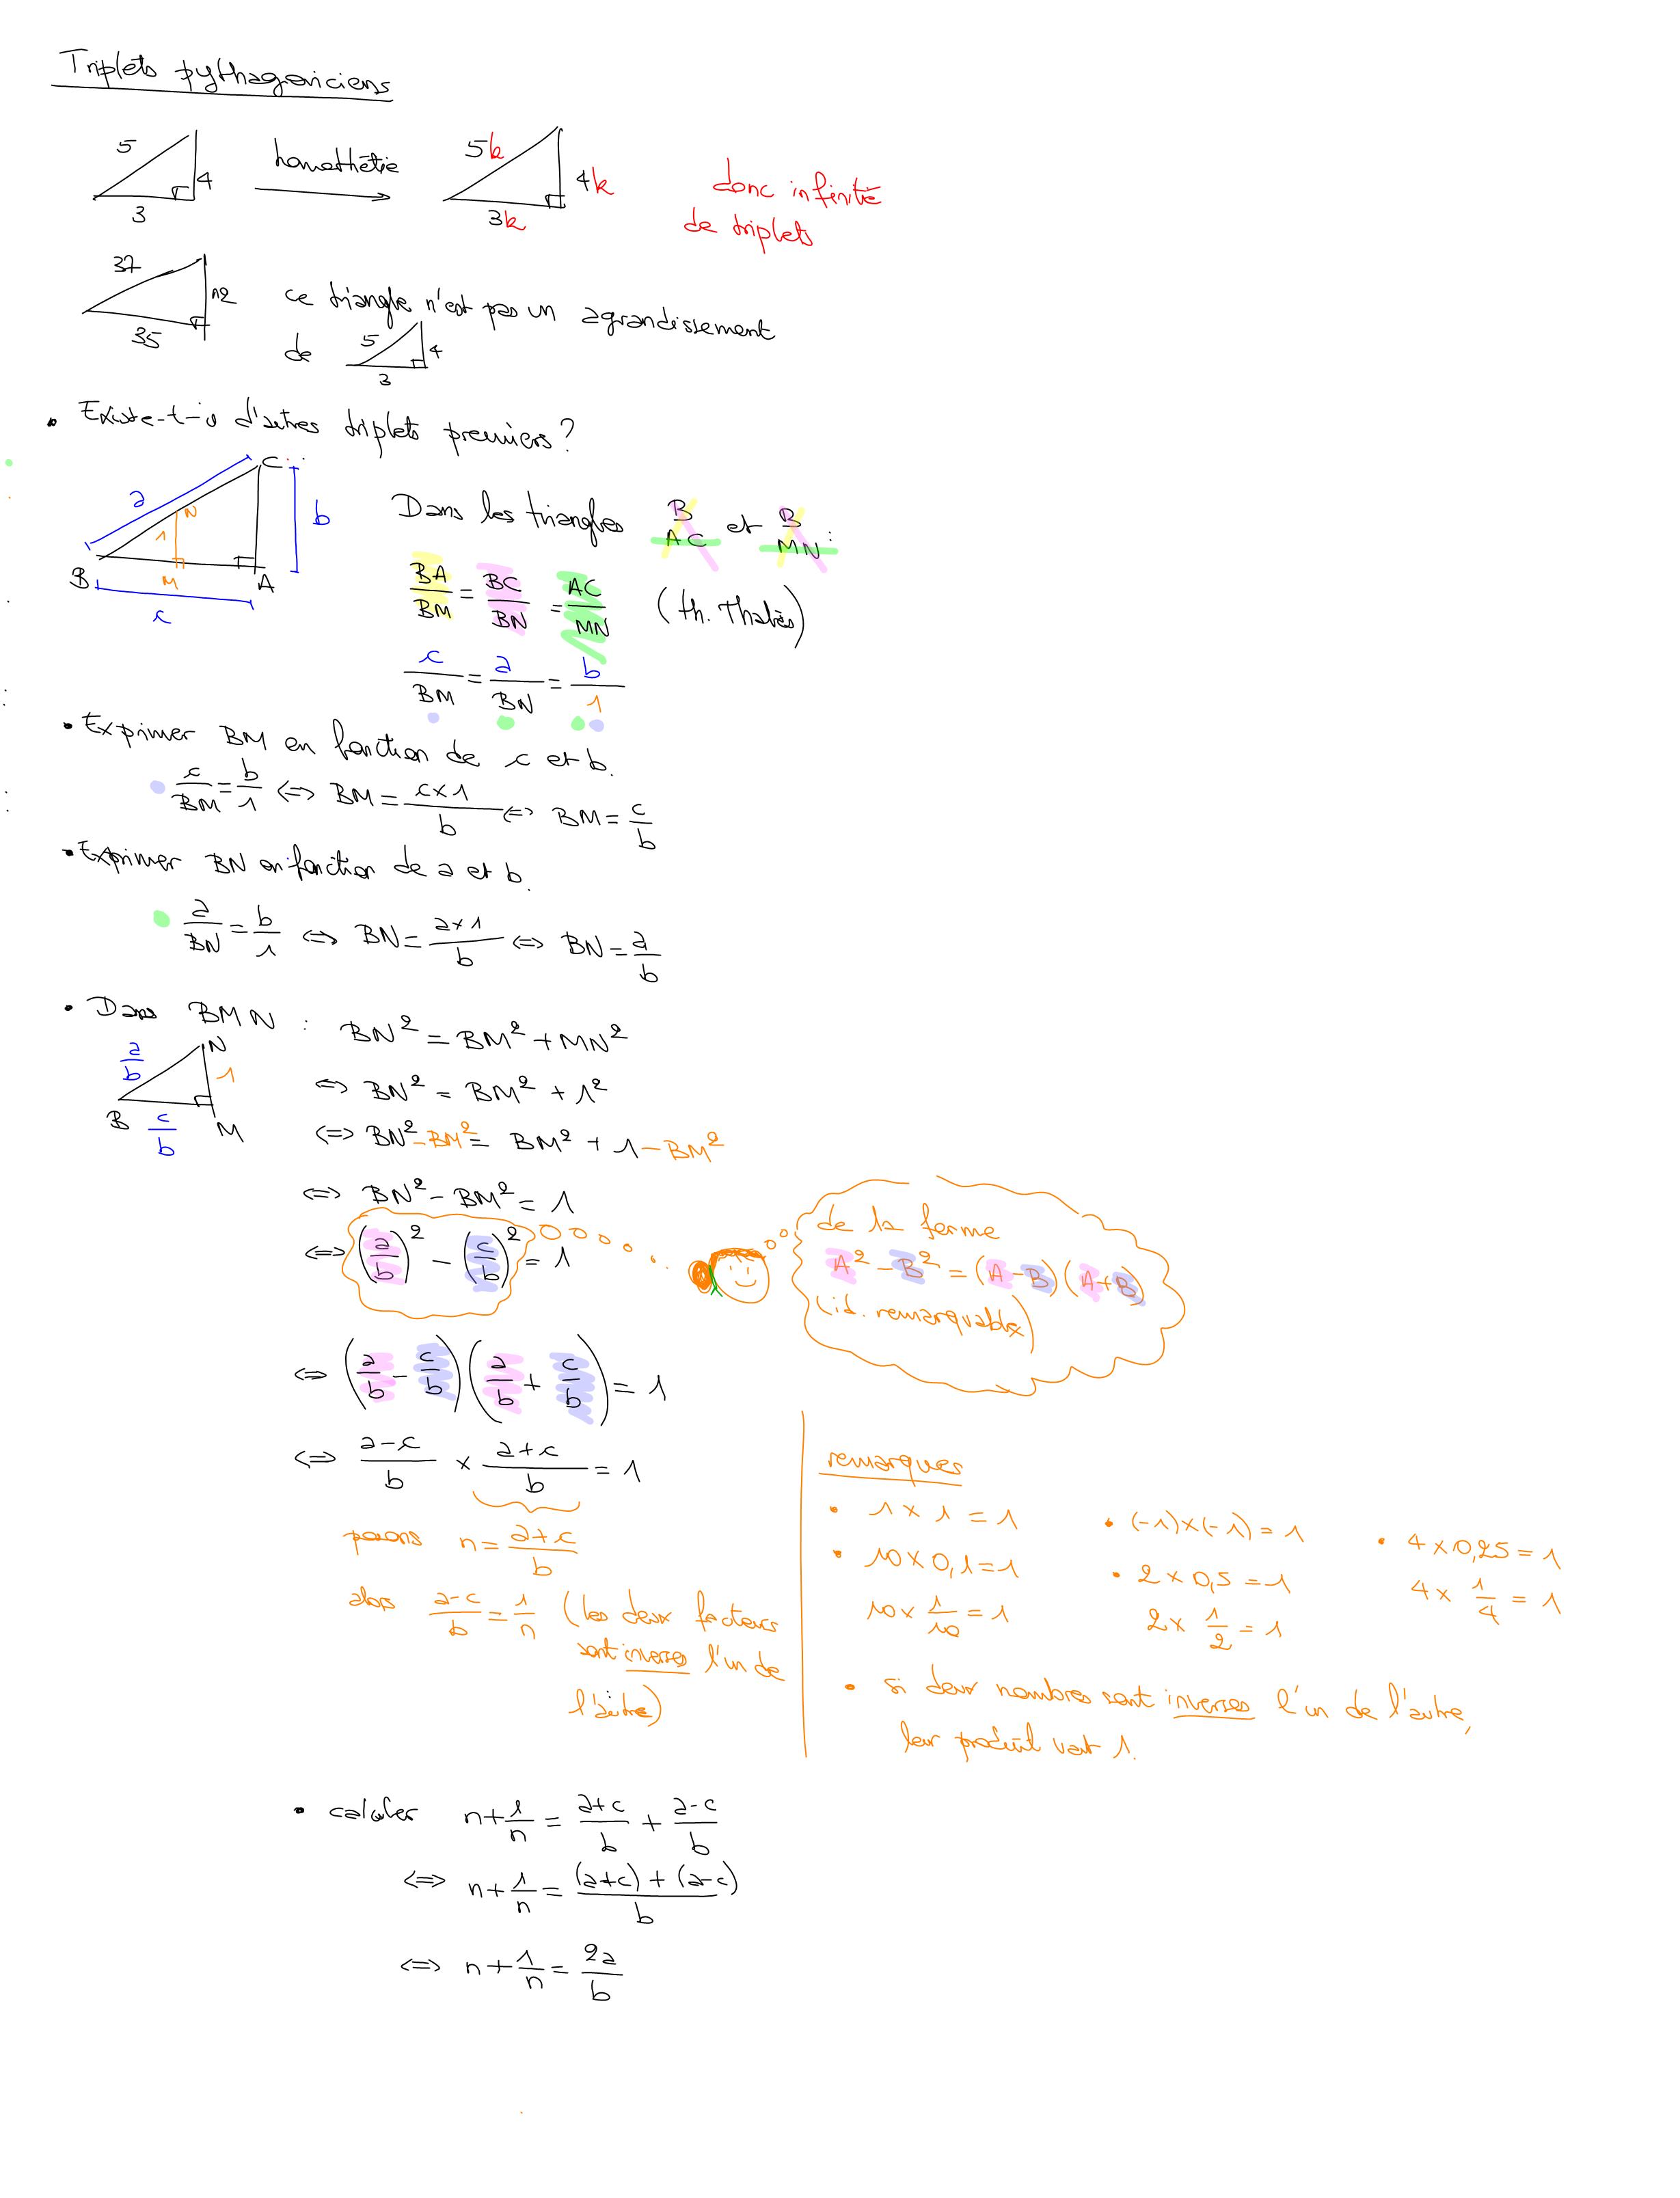 Triplets pythagoriciens
5
4
3
homothétie
5k
4k
3k
donc infinité
de triplets
37
12
35
ce triangle n'est pas un agrandissement
de
5
4
3
• Existe-t-il d'autres triplets premiers ?
a
C
N
b
1
B
M
A
c
Dans les triangles BAC et BMN :
BA/BM = BC/BN = AC/MN (th. Thalès)
c/BM = a/BN = b/1
• Exprimer BM en fonction de c et b.
c/BM = b/1 ⇔ BM = c×1/b ⇔ BM = c/b
• Exprimer BN en fonction de a et b.
a/BN = b/1 ⇔ BN = a×1/b ⇔ BN = a/b
• Dans BMN : BN² = BM² + MN²
a/b
N
1
B
c/b
M
⇔ BN² = BM² + 1²
⇔ BN² - BM² = BM² + 1 - BM²
⇔ BN² - BM² = 1
⇔ (a/b)² - (c/b)² = 1
de la forme
A² - B² = (A-B)(A+B)
(id. remarquables)
⇔ (a/b - c/b)(a/b + c/b) = 1
⇔ a-c/b × a+c/b = 1
posons n = a+c/b
alors a-c/b = 1/n (les deux facteurs
sont inverses l'un de
l'autre)
remarques
• 1 × 1 = 1
• 10 × 0,1 = 1
10 × 1/10 = 1
• (-1)×(-1) = 1
• 2 × 0,5 = 1
2 × 1/2 = 1
• 4 × 0,25 = 1
4 × 1/4 = 1
• si deux nombres sont inverses l'un de l'autre,
leur produit vaut 1.
• calculer n + 1/n = a+c/b + a-c/b
⇔ n + 1/n = (a+c) + (a-c)/b
⇔ n + 1/n = 2a/b